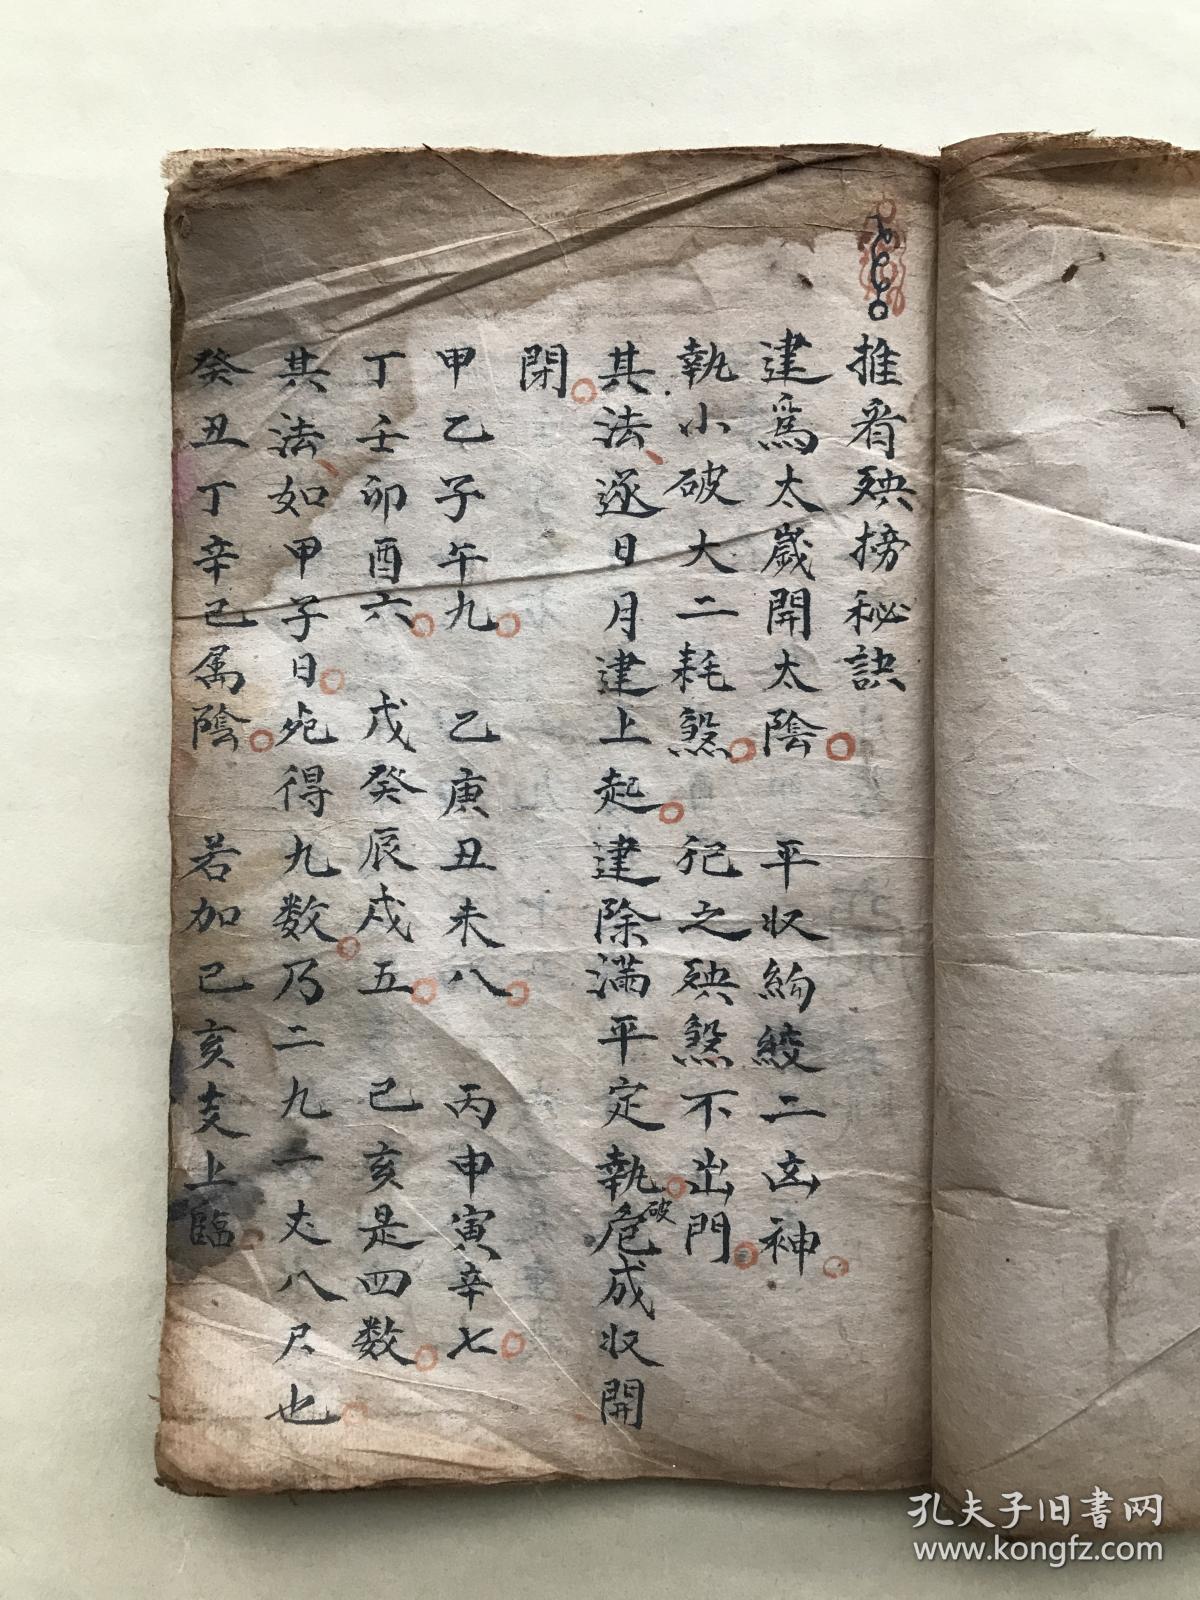 推看殃榜秘訣
建爲太歲開太陰 平收絢絞二凶神
執小破大二耗煞 犯之殃煞不出門
其法逐日月建上起建除滿平定執破危成收開
閉
甲乙子午九 乙庚丑未八 丙申寅辛七
丁壬卯酉六 戊癸辰戌五 己亥是四数
其法如甲子日死得九数乃二九一丈八尺也
癸丑丁辛己属陰 若加己亥支上臨
孔夫子旧书网
www.kongfz.com